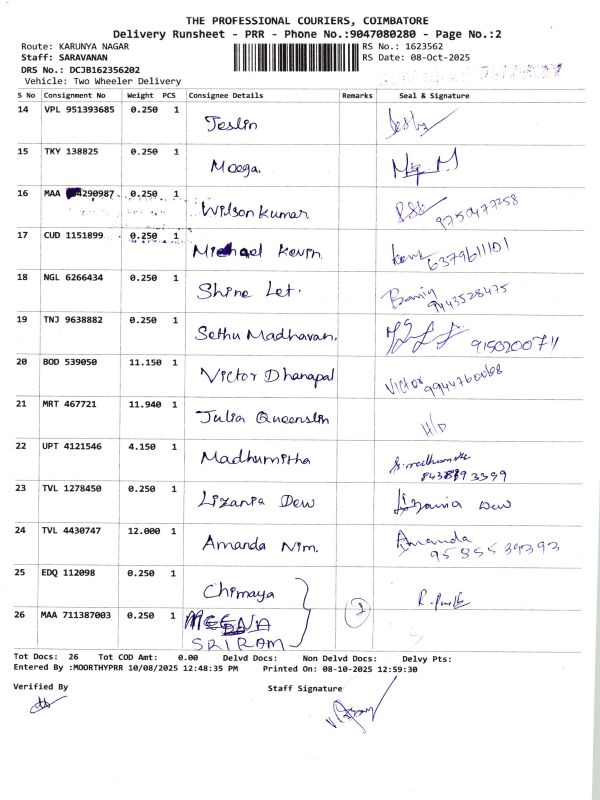 THE PROFESSIONAL COURIERS, COIMBATORE
Delivery Runsheet - PRR - Phone No.:9047080280 - Page No.:2
Route: KARUNYA NAGAR RS No.: 1623562
Staff: SARAVANAN RS Date: 08-Oct-2025
DRS No.: DCJB162356202
Vehicle: Two Wheeler Delivery
S No Consignment No Weight PCS Consignee Details Remarks Seal & Signature
14 VPL 951393685 0.250 1 Jeslin
15 TKY 138825 0.250 1 Moega.
16 MAA 4290987 0.250 1 Wilson Kumar
17 CUD 1151899 0.250 1 Michael Kevin. 6379611101
18 NGL 6266434 0.250 1 Shine Let. 9443528475
19 TNJ 9638882 0.250 1 Sethu Madhavan.
20 BOD 539050 11.150 1 Victor Dhanapal Victor 9944760068
21 MRT 467721 11.940 1 Julia Queenslin H/D
22 UPT 4121546 4.150 1 Madhumitha
23 TVL 1278450 0.250 1 Lizania Dew Lizania Dew
24 TVL 4430747 12.000 1 Amanda Nim. Amanda
9585539393
25 EDQ 112098 0.250 1 Chimaya
26 MAA 711387003 0.250 1 MEENA 2
SRIRAM
Tot Docs: 26 Tot COD Amt: 0.00 Delvd Docs: Non Delvd Docs: Delvy Pts:
Entered By :MOORTHYPRR 10/08/2025 12:48:35 PM Printed On: 08-10-2025 12:59:30
Verified By Staff Signature